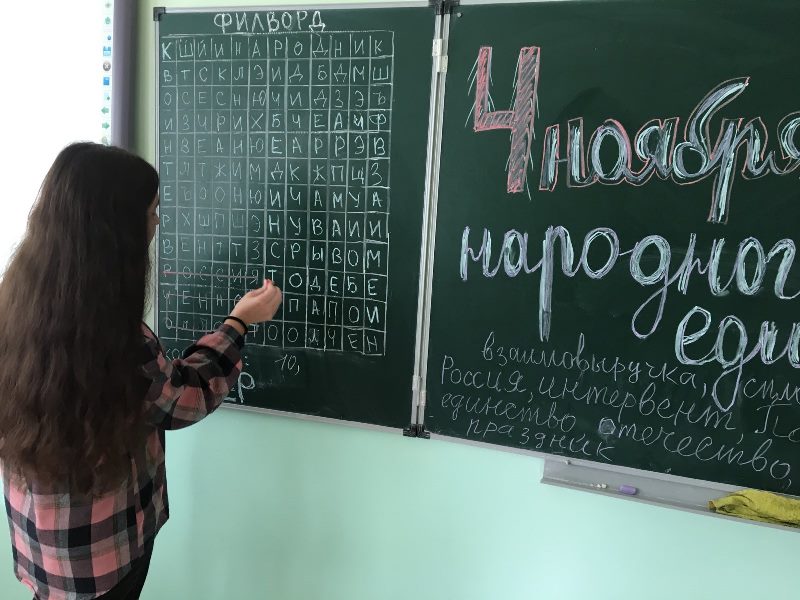 ФИЛВОРД
К Ш Й И Н А Р О Д Н И К
В Т С К Л Э И Д Б Д М Ш
О С Е С Н Ю Ч И Д З Э Ъ
И З Ч Р И Х Б Ч Е А И Ф
Н В Е А Н Ю Е А Р Р Э В
Т Л Т Ж И М Д К Ж П Щ З
Е Ъ О О Н Ю И Ч А М У А
Р Х Ш П Ш Э Н У В А И И
В Е Н Т Т З С Р Ы В О М
Р О С С И Я Т О Д Е Б Е
Ч Е Н Н О П А П О И
О О Л Ч Е Н
10,
4 ноября
народного
еди
взаимовыручка,
Россия, интервент,
единство отечество,
праздник